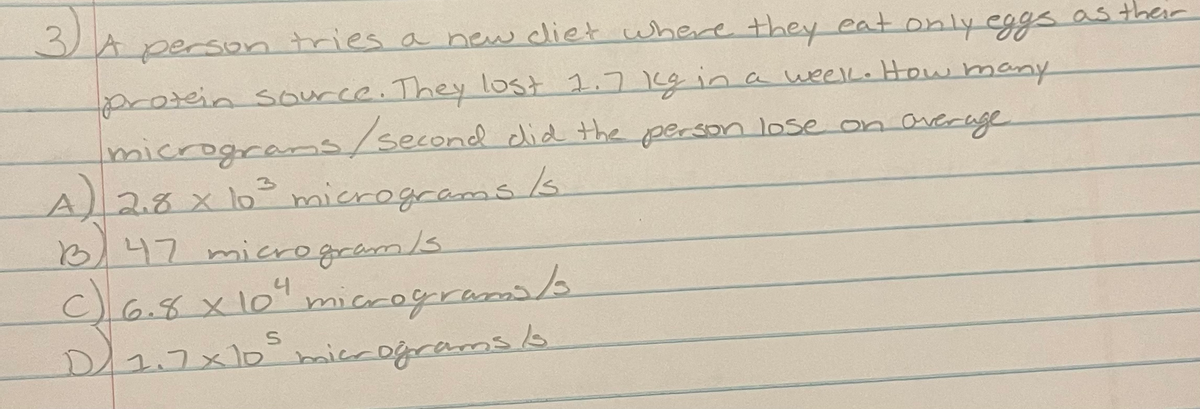 3) A person tries a new diet where they eat only eggs as their
protein source. They lost 1.7 kg in a week. How many
micrograms/second did the person lose on average
A) 2.8 x 10³ micrograms/s
B) 47 microgram/s
C) 6.8 x 10⁴ micrograms/s
D) 1.7 x 10⁵ micrograms/s